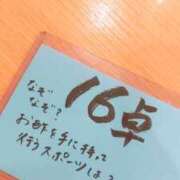 16卓
なぞ
なぞ?
お酢を手に持って
行うスポーツは?